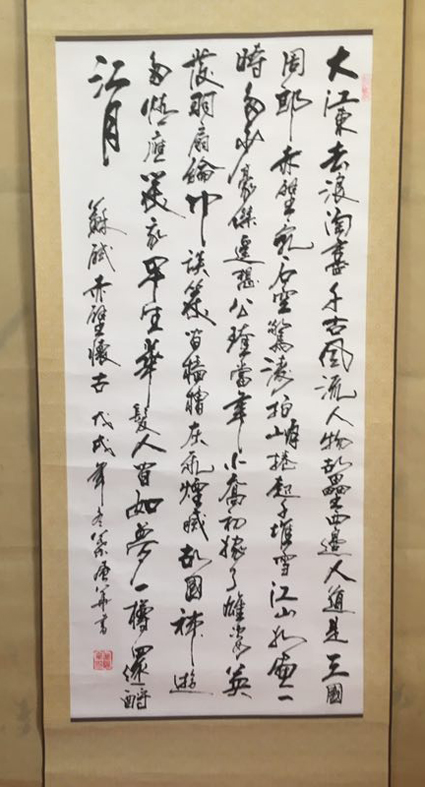 大江東去浪淘盡千古風流人物故壘西邊人道是三國
周郎赤壁亂石空驚濤拍岸捲起千堆雪江山如畫一
時多少豪傑遙想公瑾當年小喬初嫁了雄姿英
發羽扇綸巾談笑間檣櫓灰飛煙滅故國神遊
多情應笑我早生華髮人間如夢一樽還酹
江月
蘇軾赤壁懷古 戊戌年冬 書